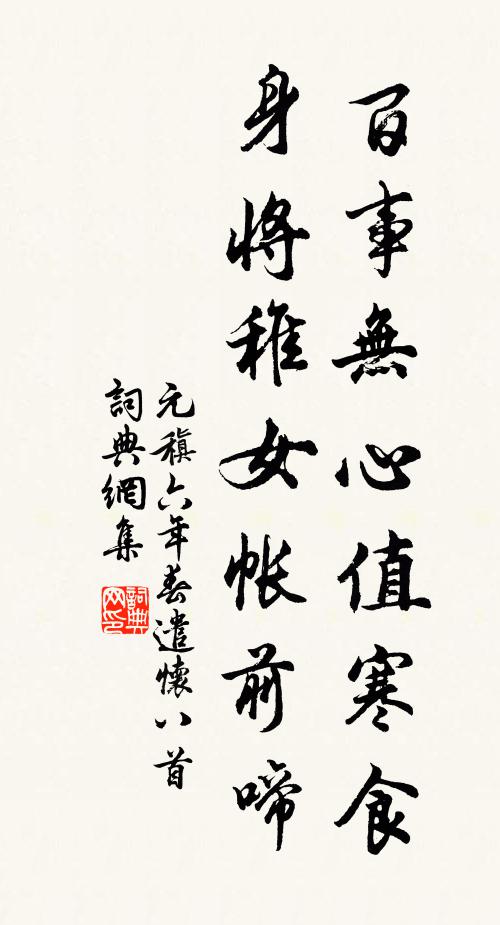 百事無心值寒食
身將稚女帳前啼
元稹六年春遣懷八首
詞典網集
詞典
网印